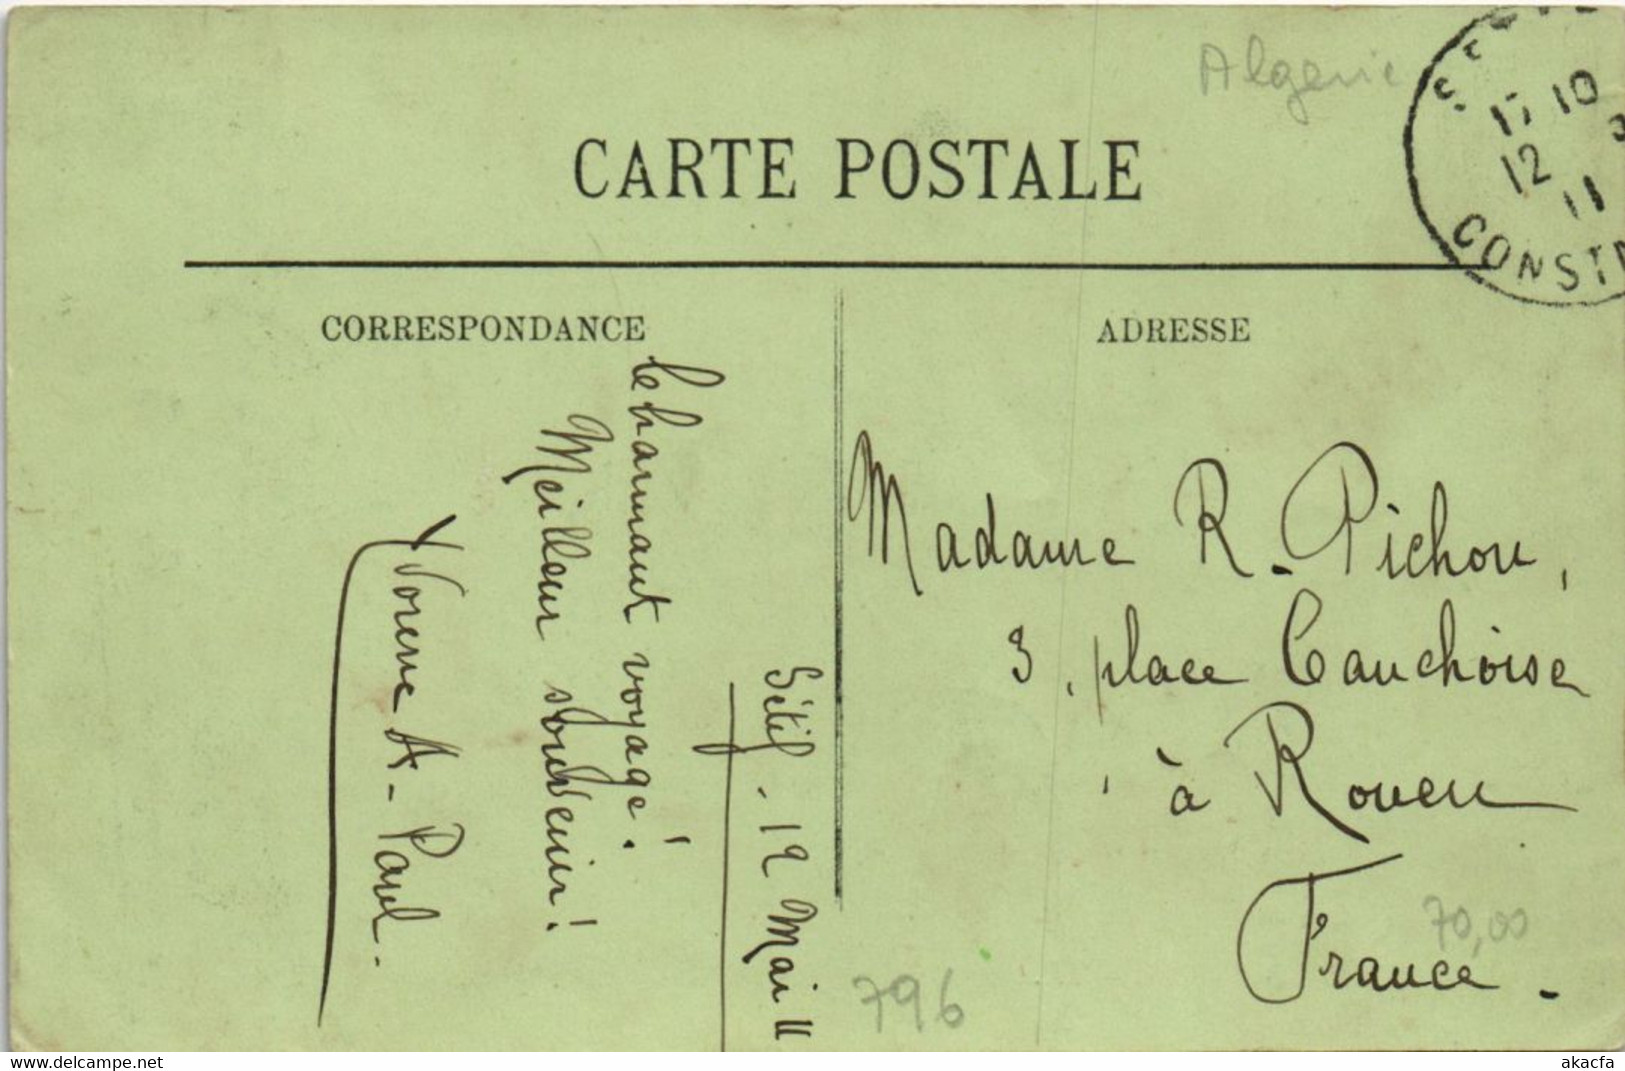 Algerie
17 10
12
11
CONST
CARTE POSTALE
CORRESPONDANCE
ADRESSE
Sétif. 12 Mai 11
charmant voyage!
Meilleur souvenir!
A. Paul.
Madame R. Pichon,
3, place Cauchoise
à Rouen
France.
70,00
796
delcampe.net
akacfa